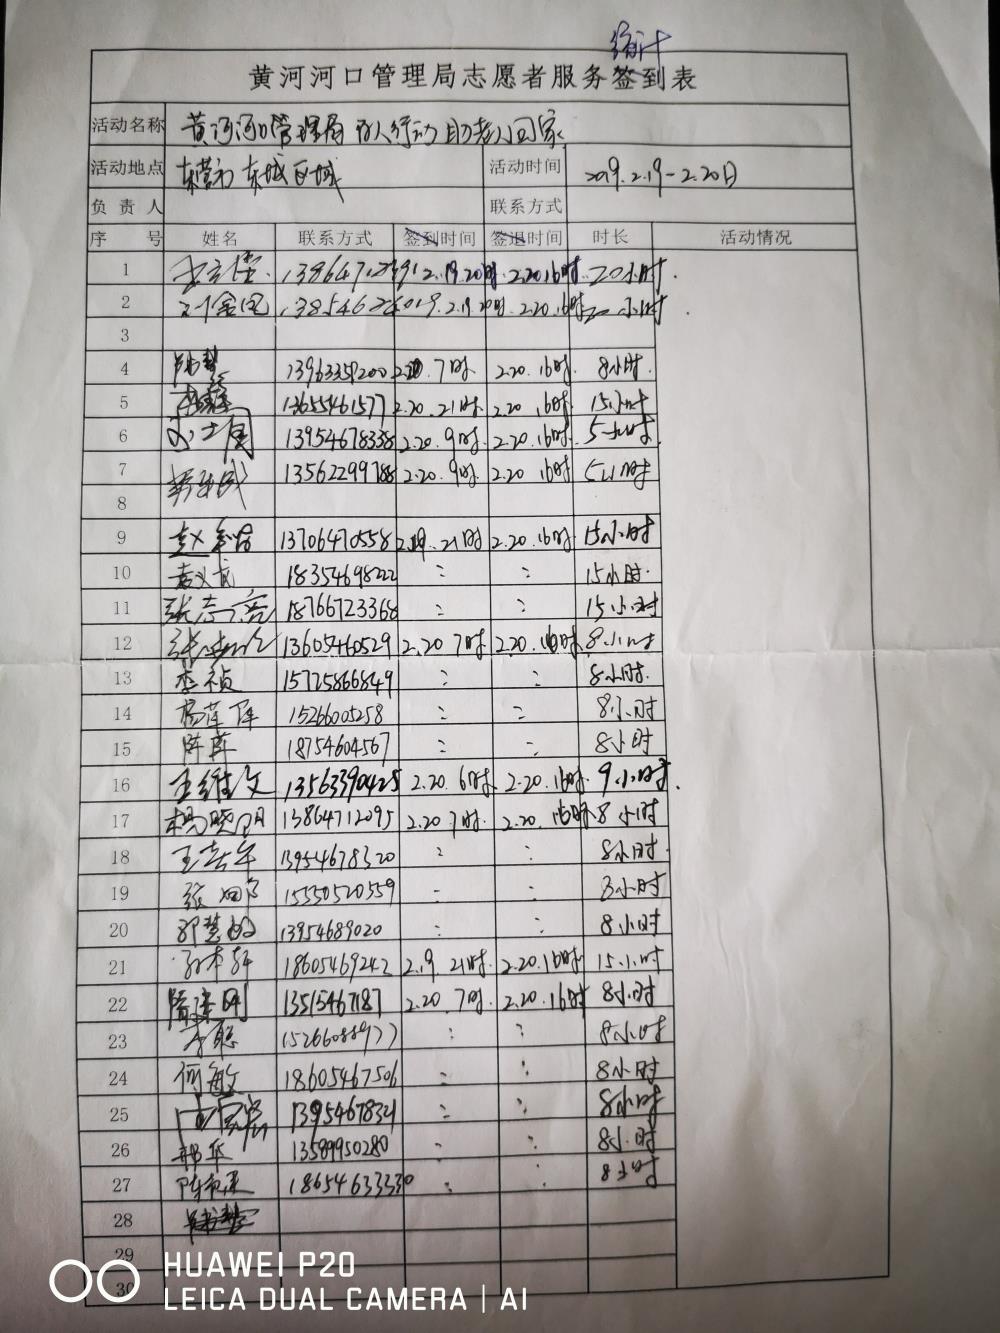 统计
黄河河口管理局志愿者服务签到表
活动名称 黄河河口管理局 百人行动 助老人回家
活动地点 东营市东城区域 活动时间 2019.2.19-2.20日
负责人 联系方式
序号 姓名 联系方式 签到时间 签退时间 时长 活动情况
1 2.19.20时 2.20.16时 20小时
2 2.19.20时 2.20.16时 小时
3
4 13963359200 7时 2.20.16时 8小时
5 13655461577 2.20.21时 2.20.16时 15小时
6 13954678338 2.20.9时 2.20.16时 5小时
7 13562299788 2.20.9时 2.20.16时 5小时
8
9 13706470558 21时 2.20.16时 15小时
10 18354698222 : : 15小时
11 张志亮 18766723368 : : 15小时
12 13605460529 2.20 7时 2.20.16时 8小时
13 李祯 15725866849 : : 8小时
14 15266005258 : : 8小时
15 18754604567 : : 8小时
16 王维文 13563390425 2.20.6时 2.20.16时 9小时
17 杨晓明 13864712095 2.20 7时 2.20.16时 8小时
18 13954678320 : : 8小时
19 15550520559 : : 8小时
20 郭慧敏 13954689020 : : 8小时
21 18605469242 2.19.21时 2.20.16时 15小时
22 13515467187 2.20.7时 2.20.16时 8小时
23 李聪 15266088977 : : 8小时
24 何敏 18605467506 : : 8小时
25 1395467834 : : 8小时
26 郝华 13589950280 : : 8小时
27 18654633330 : : 8小时
28
29
30
HUAWEI P20
LEICA DUAL CAMERA | AI